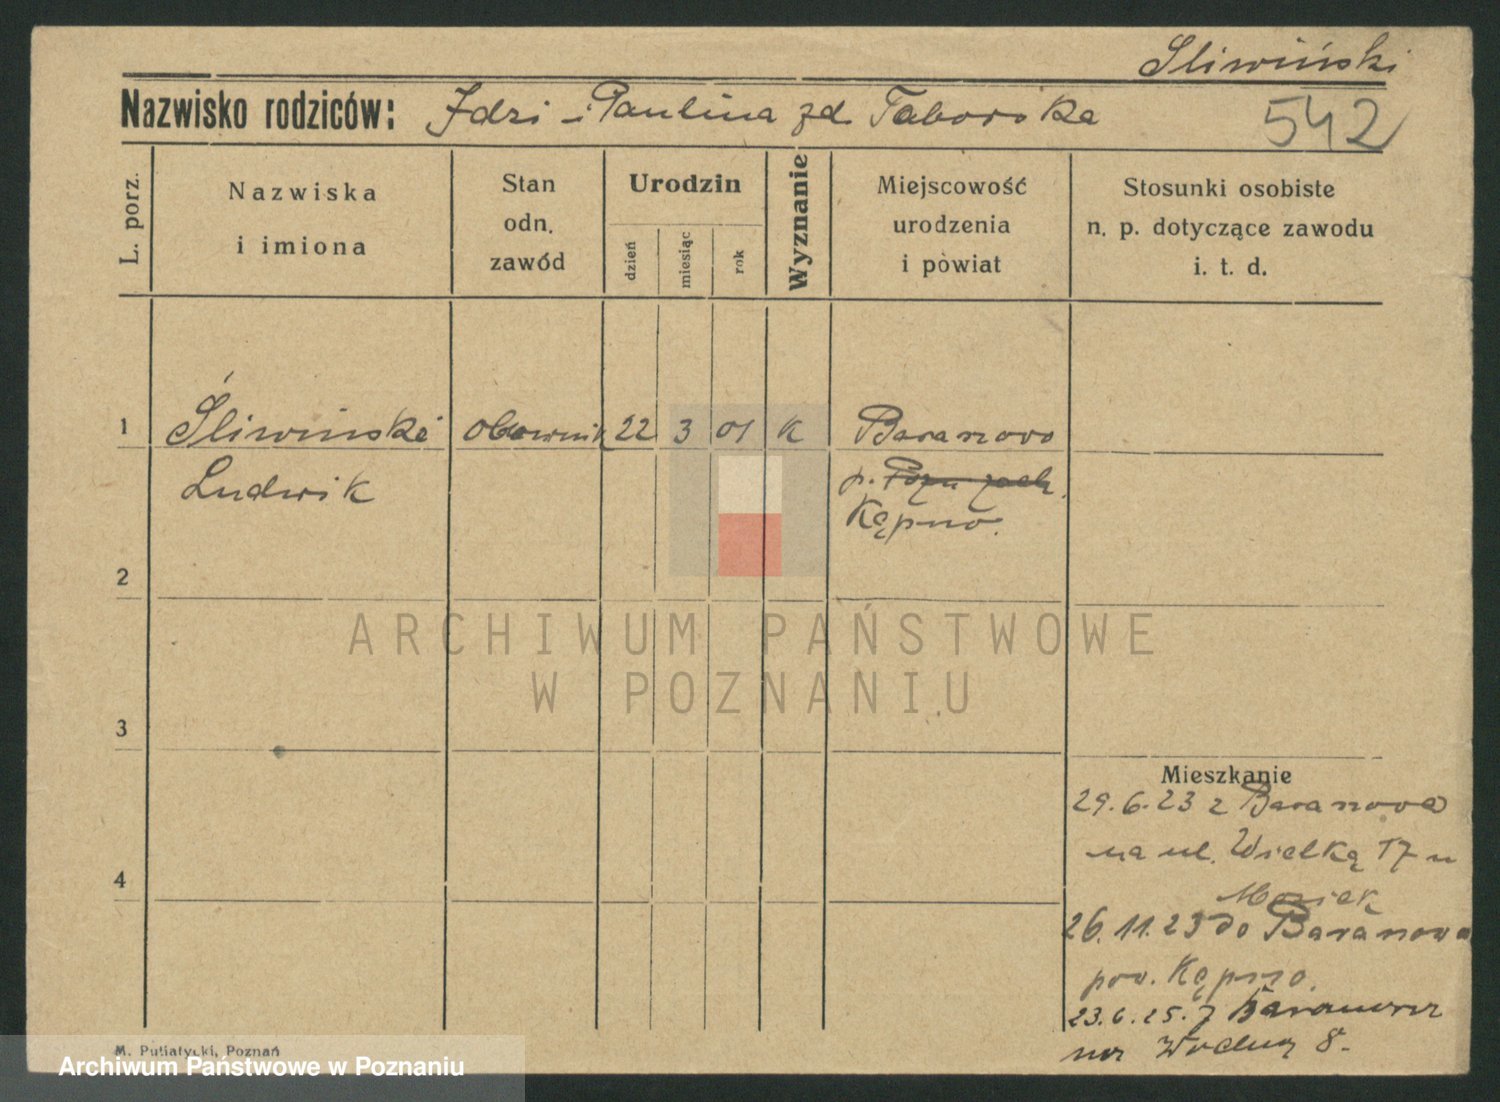 Sliwiński
Nazwisko rodziców: Idzi i Paulina zd. Taborska 542
L. porz.
Nazwiska
i imiona
Stan
odn.
zawód
Urodzin
dzień
miesiąc
rok
Wyznanie
Miejscowość
urodzenia
i powiat
Stosunki osobiste
n. p. dotyczące zawodu
i. t. d.
1 Śliwiński 22 3 01 K Baranowo
Ludwik p. Pozn zach.
Kępno.
2
3
4
Mieszkanie
29.6.23 z Baranowa
na ul. Wielką 17 u
26.11.23 do Baranowa
pow. Kępno.
23.6.25. z Baranowa
na Wodną 8.
M. Putiatycki, Poznań
ARCHIWUM PAŃSTWOWE
W POZNANIU
Archiwum Państwowe w Poznaniu